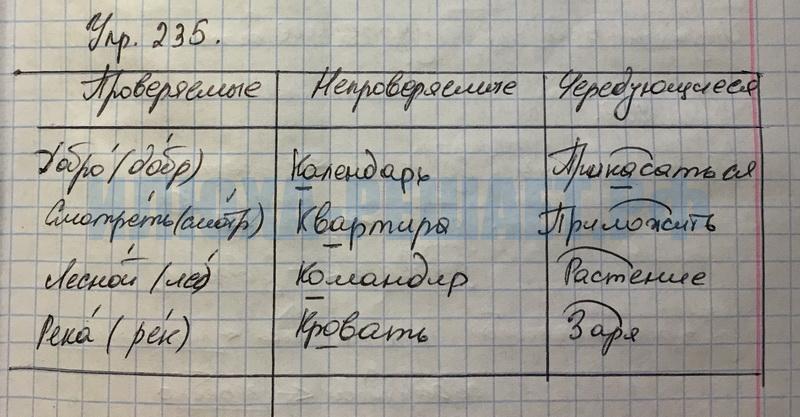 Упр. 235.
Проверяемые Непроверяемые Чередующиеся
Добро (добр) Календарь Прикасаться
Смотреть (смотр) Квартира Приложить
Лесной (лес) Командир Растение
Река (рек) Кровать Заря